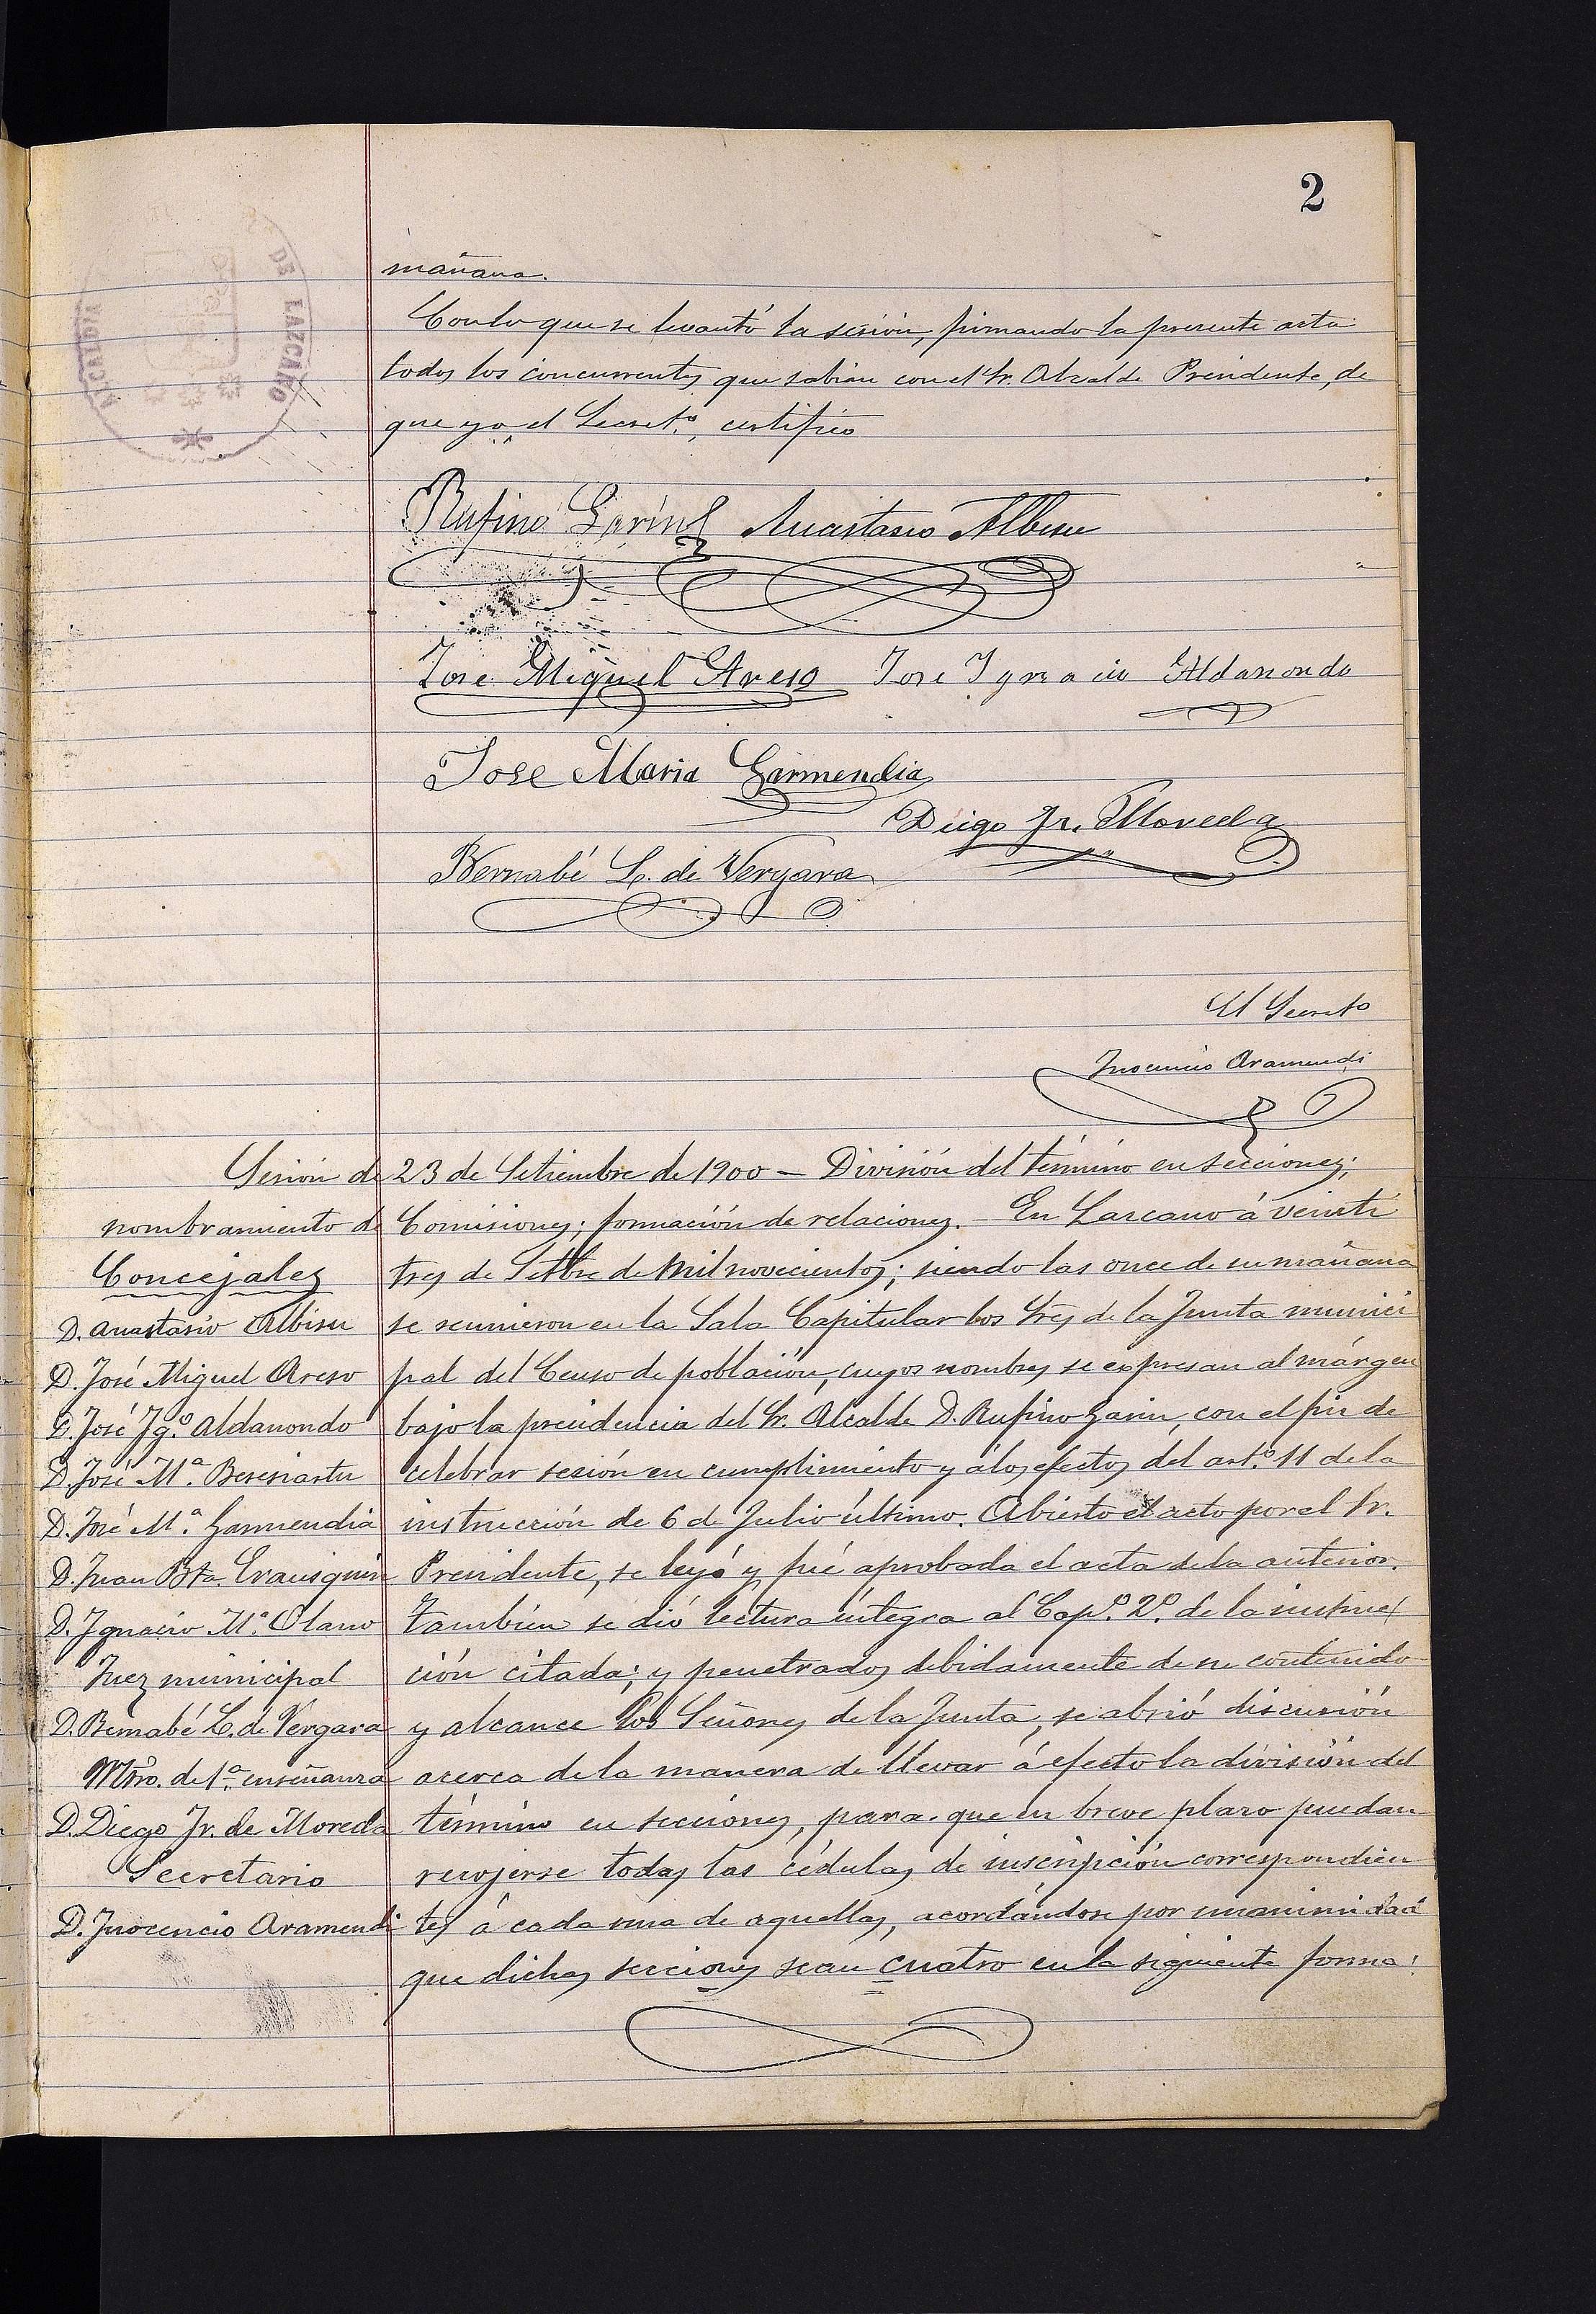 2
ALCALDIA DE LAZCANO
mañana.
Con lo que se levantó la sesión, firmando la presente acta
todos los concurrentes que sabian con el Sr. Alcalde Presidente, de
que yo, el Secret.º, certifico
Rufino Garin Anastasio Albisu
Jose Miguel Areso Jose Ygnacio Aldanondo
Jose Maria Garmendia
Diego Jr. Moreda
Bernabé L. de Vergara
El Secreto
Inocencio Aramendi
Sesion de 23 de Setiembre de 1900 – División del término en secciones;
nombramiento de Comisiones; formación de relaciones. – En Lazcano á veinti
tres de Setbre de mil novecientos; siendo las once de su mañana
se reunieron en la Sala Capitular los Sres de la Junta munici
pal del Censo de población, cuyos nombres se expresan al márgen
bajo la presidencia del Sr. Alcalde D. Rufino Garin, con el fin de
celebrar sesión en cumplimiento y á los efectos del art.º 11 de la
instrucción de 6 de Julio último. Abierto el acto por el Sr.
Presidente, se leyó y fué aprobada el acta de la anterior.
Tambien se dió lectura íntegra al Cap.º 2.º de la instruc
ción citada; y penetrados debidamente de su contenido
y alcance los Señores de la Junta, se abrió discusión
acerca de la manera de llevar á efecto la división del
término en secciones, para que en breve plazo puedan
recojerse todas las cédulas de inscripción correspondien
tes á cada una de aquellas, acordándose por unanimidad
que dichas secciones sean cuatro en la siguiente forma:
Concejales
D. Anastasio Albisu
D. José Miguel Areso
D. José Yg.º Aldanondo
D. José M.ª Beresiartu
D. José M.ª Garmendia
D. Juan Bta. Erausquin
D. Ygnacio M.ª Olano
Juez municipal
D. Bernabé L. de Vergara
Mtro. de 1.ª enseñanza
D. Diego Jr. de Moreda
Secretario
D. Inocencio Aramendi